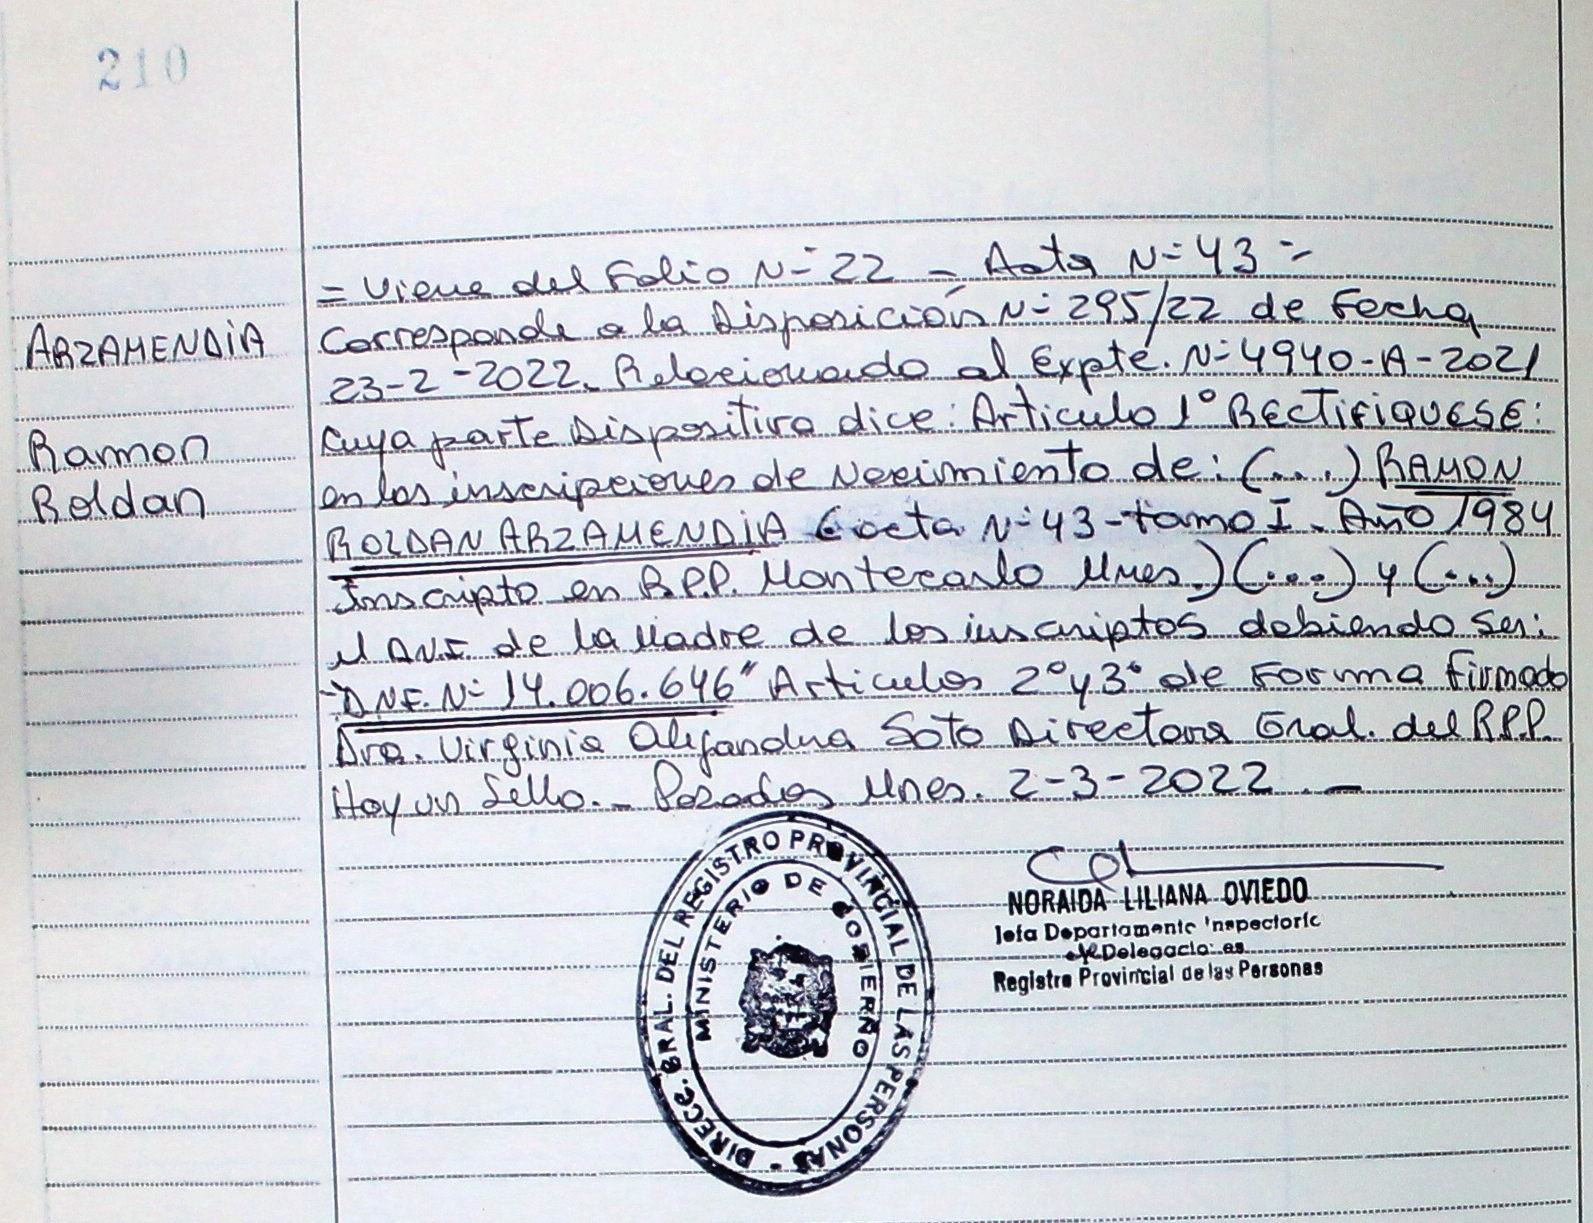 210
ARZAMENDIA
Ramon
Roldan
= Viene del Folio N= 22 - Acta N= 43 =
Corresponde a la Disposición N= 295/22 de Fecha
23-2-2022. Relacionado al Expte. N= 4940-A-2021
cuya parte Dispositiva dice: Articulo 1° RECTIFIQUESE:
en las inscripciones de Nacimiento de: (....) RAMON
ROLDAN ARZAMENDIA (acta N= 43 - tomo I. Año 1984
Inscripto en R.P.P. Montecarlo Mnes.) (...) y (...)
el D.N.I. de la Madre de los inscriptos debiendo ser:
"D.N.I. N= 14.006.646" Articulos 2° y 3° de Forma Firmado
Dra. Virginia Alejandra Soto Directora Gral. del R.P.P.
Hay un Sello. - Posadas Mnes. 2-3-2022 . -
DIRECC. GRAL. DEL REGISTRO PROVINCIAL DE LAS PERSONAS -
MINISTERIO DE GOBIERNO
NORAIDA LILIANA OVIEDO
Jefa Departamento Inspectoria
de Delegaciones
Registro Provincial de las Personas